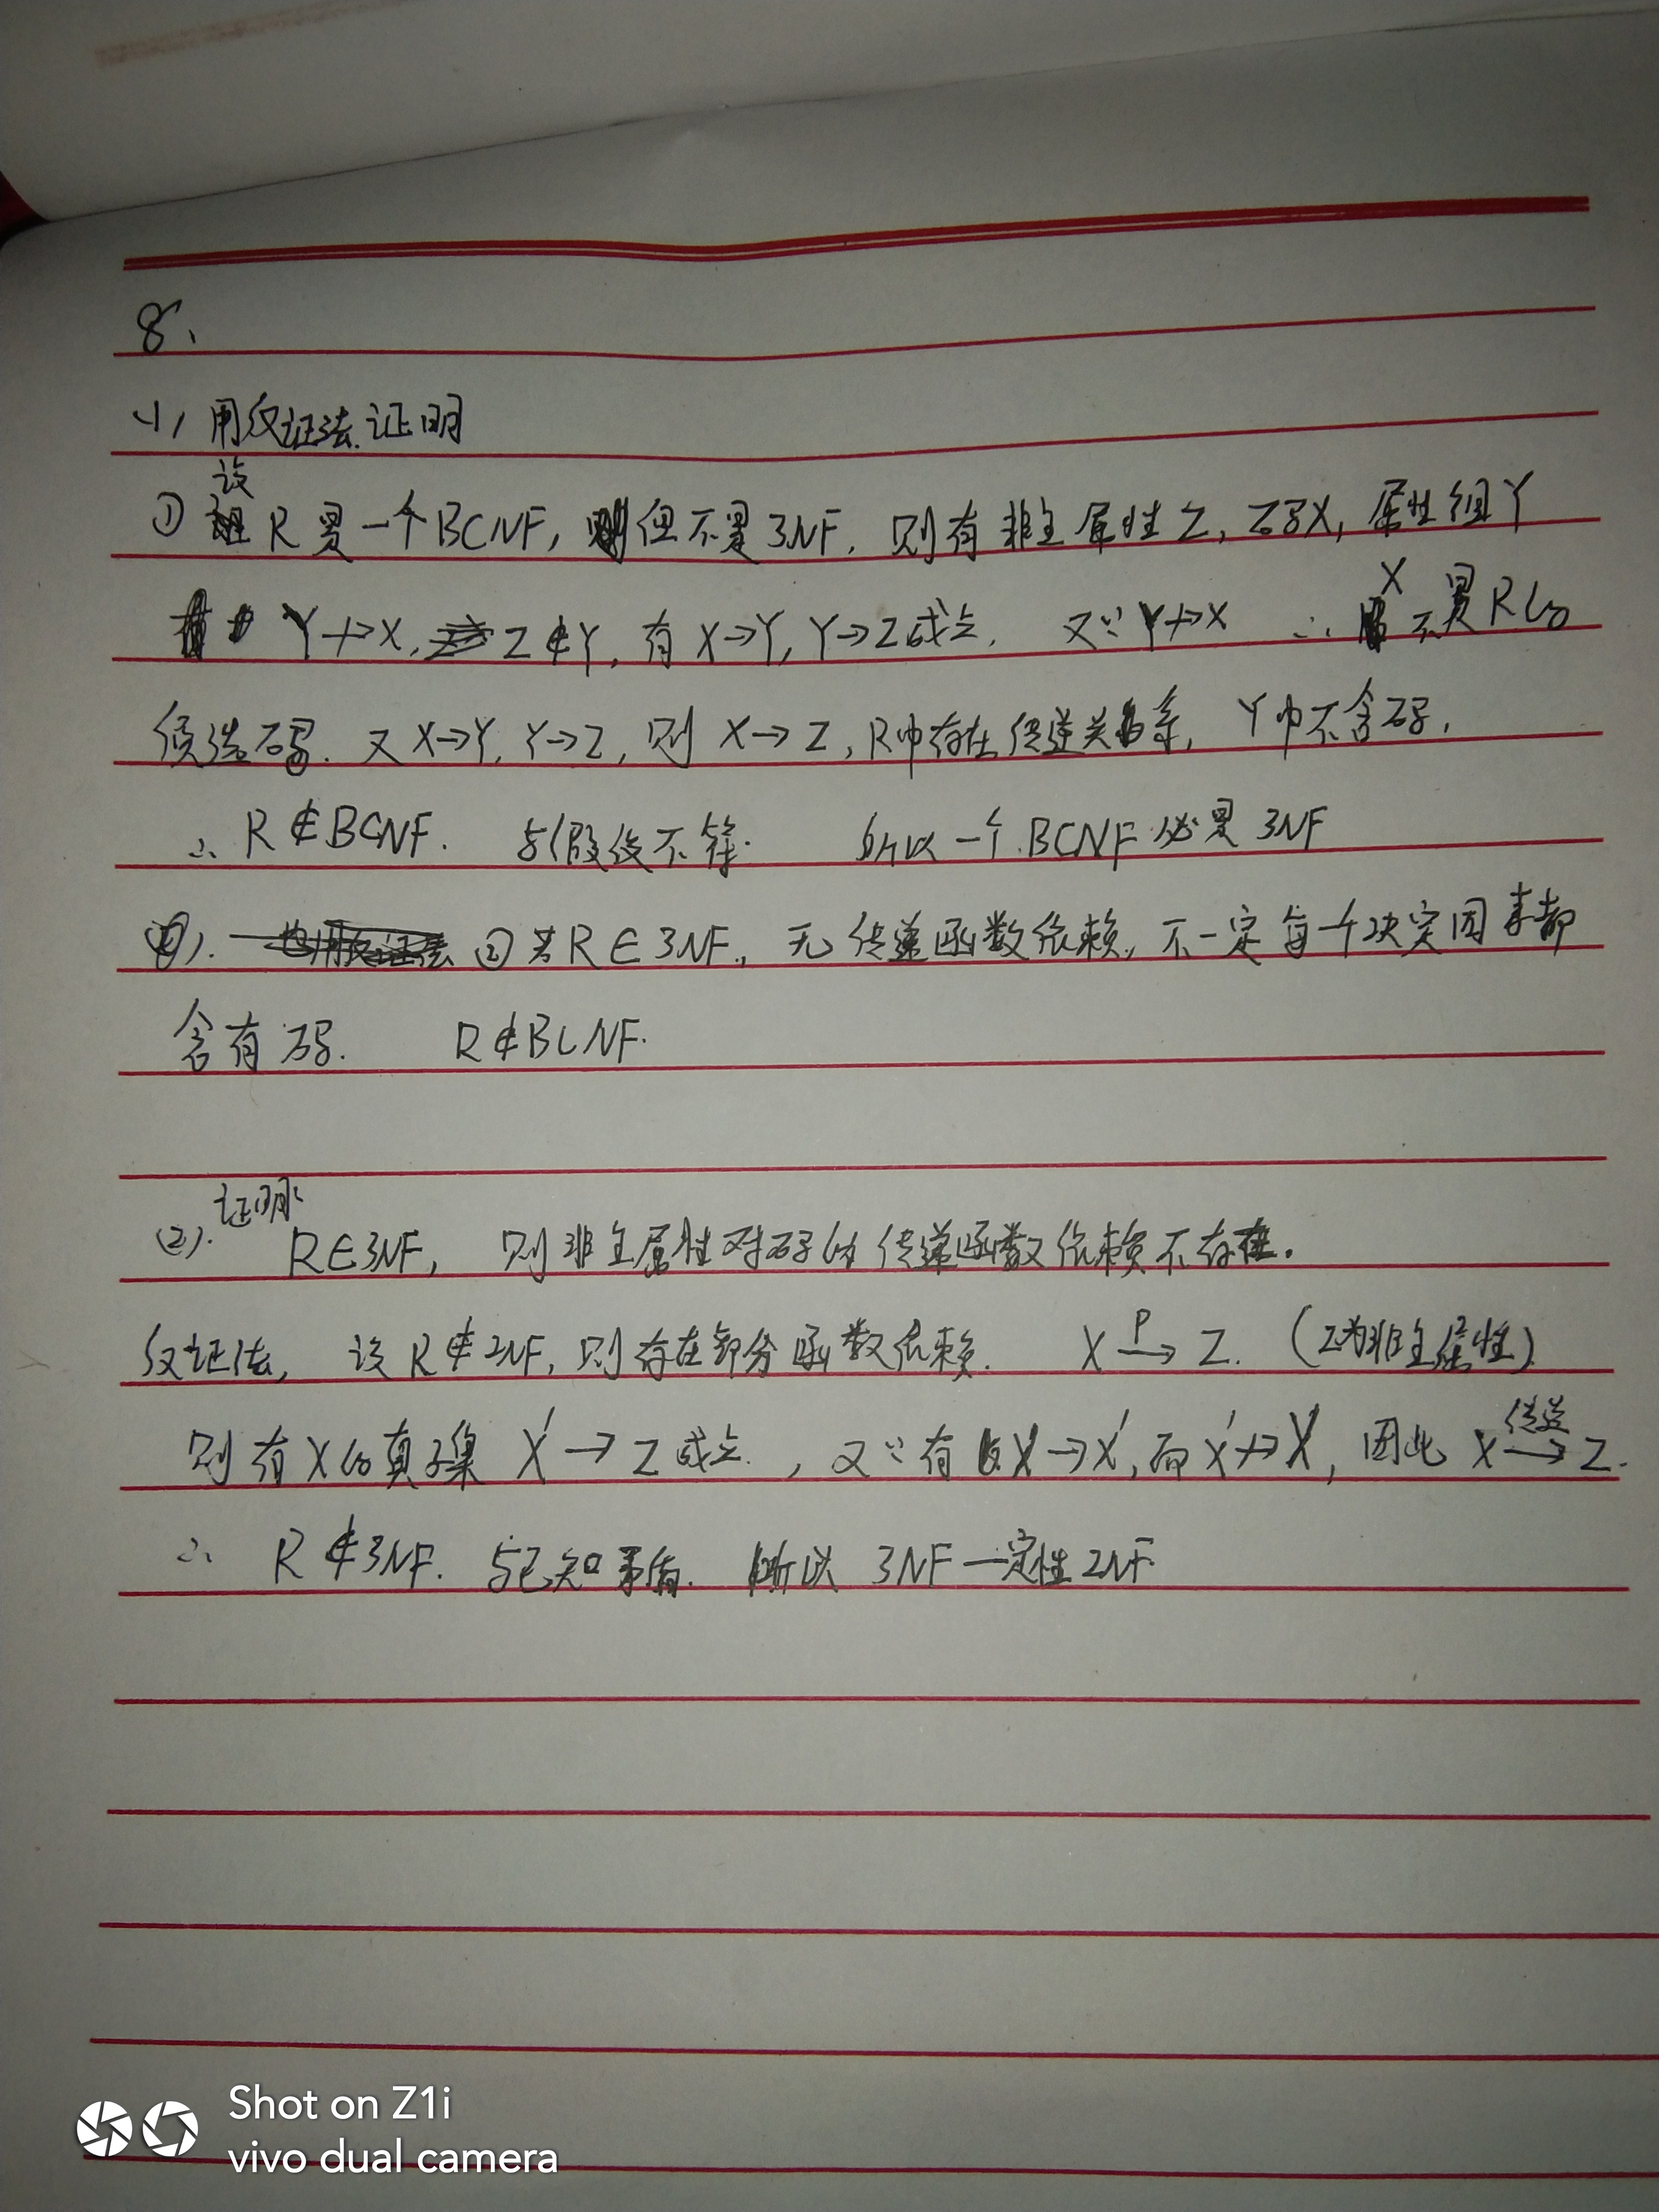 8、
(1) 用反证法证明
① 设 R是一个BCNF, 但不是3NF, 则有非主属性Z, 码X, 属性组Y
Y↛X, Z∉Y, 有X→Y, Y→Z成立. 又∵Y↛X ∴ X不是R的
侯选码. 又X→Y, Y→Z, 则 X→Z, R中存在传递关系, Y中不含码,
∴ R∉BCNF. 与假设不符. 所以一个BCNF必是3NF
② 若R∈3NF, 无传递函数依赖, 不一定每一个决定因素都
含有码. R∉BCNF.
(2). 证明: R∈3NF, 则非主属性对码的传递函数依赖不存在.
反证法, 设R∉2NF, 则存在部分函数依赖. X P→ Z. (Z为非主属性)
则有X的真子集 X'→Z成立. , 又∵有X→X', 而X'↛X, 因此 X 传递→ Z.
∴ R∉3NF. 与已知矛盾. 所以 3NF一定性2NF
Shot on Z1i
vivo dual camera